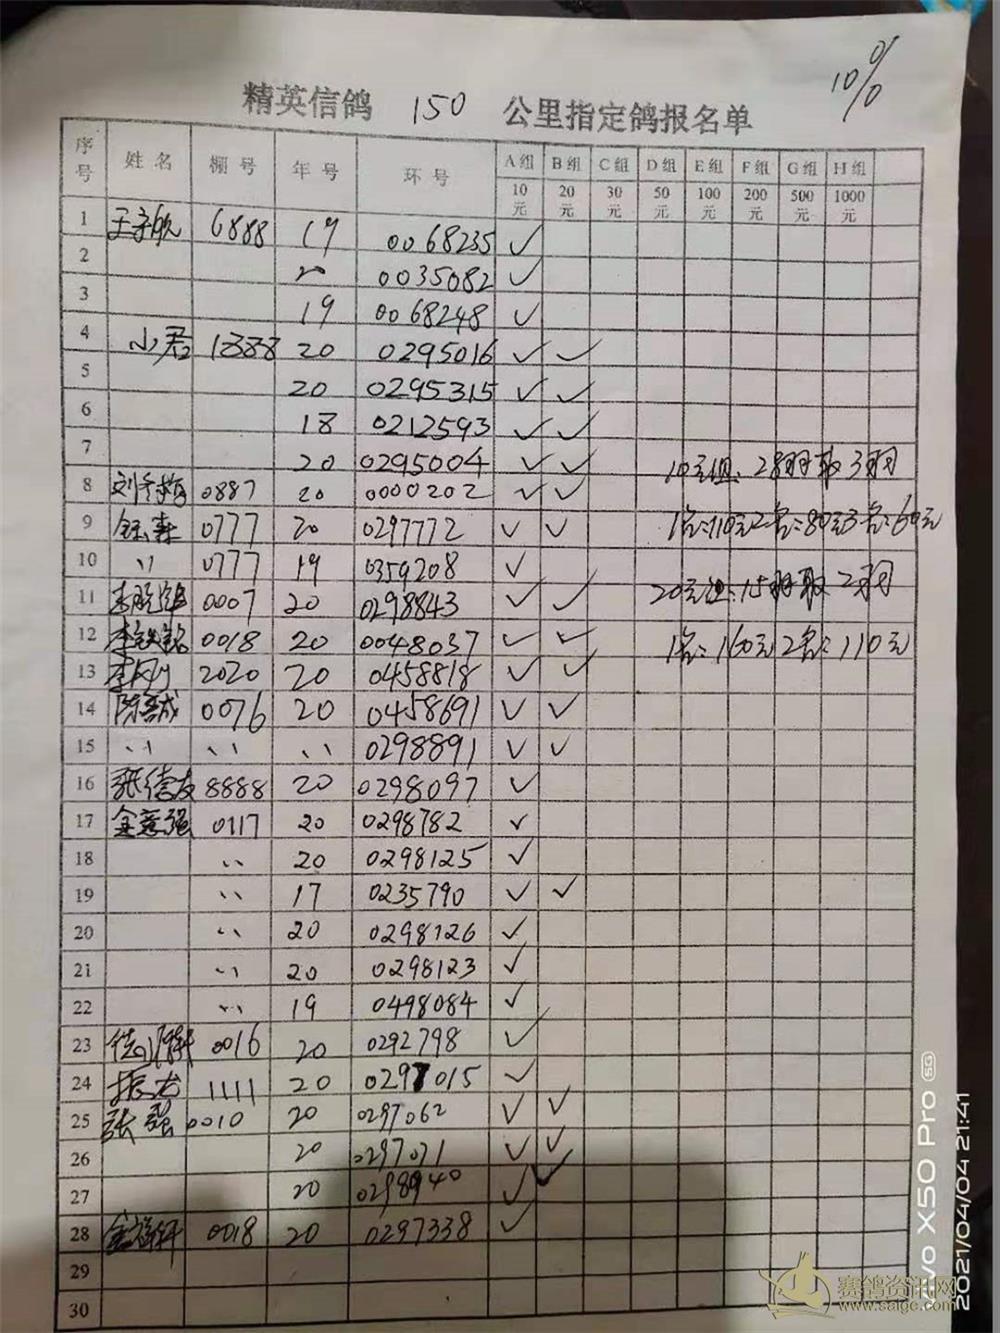 10%
精英信鸽 150 公里指定鸽报名单
序号 姓名 棚号 年号 环号 A组 B组 C组 D组 E组 F组 G组 H组
10元 20元 30元 50元 100元 200元 500元 1000元
1 6888 19 0068235 ✓
2 20 0035082 ✓
3 19 0068248 ✓
4 小君 1888 20 0295016 ✓ ✓
5 20 0295315 ✓ ✓
6 18 0212593 ✓ ✓
7 20 0295004 ✓ ✓
10元组:28羽取3羽
8 0887 20 0000202 ✓ ✓
9 钰森 0777 20 0297772 ✓ ✓
1名:110元2名:80元3名:60元
10 〃 0777 19 0359208 ✓
11 0007 20 0298843 ✓ ✓
20元组:15羽取2羽
12 李铁铭 0018 20 0048037 ✓ ✓
1名:160元2名:110元
13 2020 20 0458818 ✓ ✓
14 0076 20 0458691 ✓ ✓
15 〃 〃 〃 0298891 ✓ ✓
16 张德友 8888 20 0298097 ✓
17 金意强 0117 20 0298782 ✓
18 〃 20 0298125 ✓
19 〃 17 0235790 ✓ ✓
20 〃 20 0298126 ✓
21 〃 20 0298123 ✓
22 〃 19 0498084 ✓
23 0016 20 0292798 ✓
24 振龙 1111 20 0297015 ✓
25 张强 0010 20 0297062 ✓ ✓
26 20 0297071 ✓ ✓
27 20 0298940 ✓ ✓
28 金祥轩 0018 20 0297338 ✓
29
30
vivo X50 Pro 5G
2021/04/04 21:41
赛鸽资讯网
www.saige.com